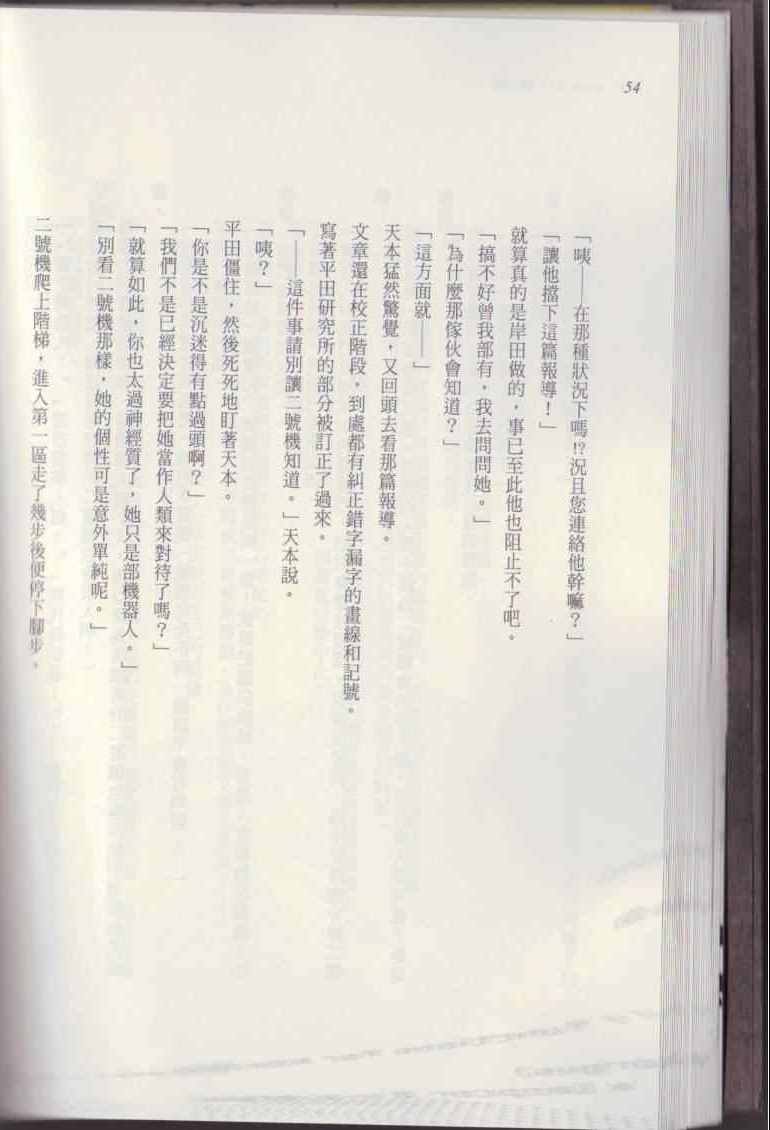 54
「咦——在那種狀況下嗎!?況且您連絡他幹嘛?」
「讓他擋下這篇報導!」
就算真的是岸田做的,事已至此他也阻止不了吧。
「搞不好曾我部有,我去問問她。」
「為什麼那傢伙會知道?」
「這方面就——」
天本猛然驚覺,又回頭去看那篇報導。
文章還在校正階段,到處都有糾正錯字漏字的畫線和記號。
寫著平田研究所的部分被訂正了過來。
「——這件事請別讓二號機知道。」天本說。
「咦?」
平田僵住,然後死死地盯著天本。
「你是不是沉迷得有點過頭啊?」
「我們不是已經決定要把她當作人類來對待了嗎?」
「就算如此,你也太過神經質了,她只是部機器人。」
「別看二號機那樣,她的個性可是意外單純呢。」
二號機爬上階梯,進入第一區走了幾步後便停下腳步。